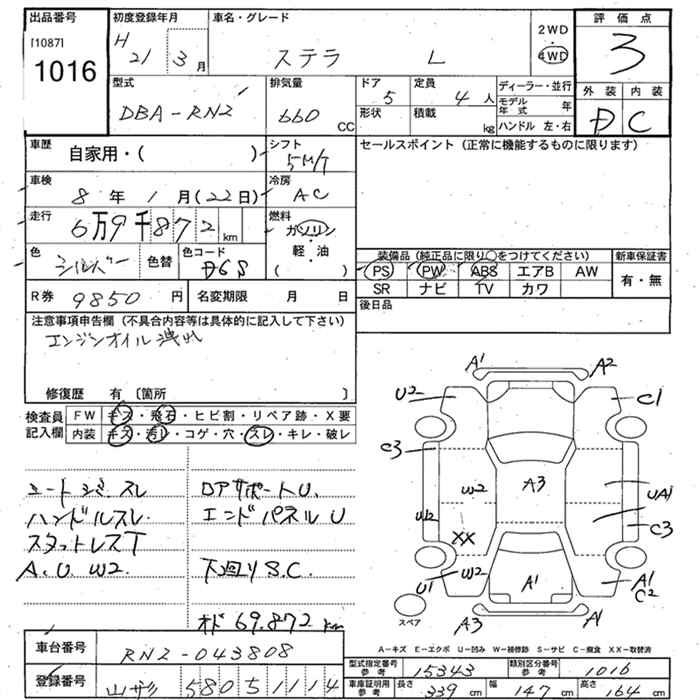 出品番号 初度登録年月 車名・グレード 2WD ・ 4WD 評価点
[1087] H 21 年 3 月 ステラ L 3
1016
型式 排気量 ドア 定員 ディーラー・並行 外装 内装
DBA-RN2 660 CC 5 4 人 モデル年式 年 D C
形状 積載 kg ハンドル 左・右
車歴 自家用・( ) シフト 5M/T セールスポイント(正常に機能するものに限ります)
車検 8 年 1 月(22日) 冷房 AC
走行 6万9千872 km 燃料 ガソリン 軽・油 ( )
色 シルバー 色替 色コード D6S
装備品(純正品に限り○をつけてください) 新車保証書
PS PW ABS エアB AW 有・無
SR ナビ TV カワ
R券 9850 円 名変期限 月 日 後日品
注意事項申告欄(不具合内容等は具体的に記入して下さい)
エンジンオイル洩れ
修復歴 有〔箇所 〕
検査員記入欄 FW キズ・飛石・ヒビ割・リペア跡・X要
内装 キズ・汚レ・コゲ・穴・スレ・キレ・破レ
シートシミ スレ ロアサポートU.
ハンドルスレ. エンドパネル U
スタットレスT
A.U.W2. 下廻りS.C.
オド 69.872 km
A1 A2
U2 C1
C3
W2 A3 UA1
U2 C3
XX
U1 W2 A1 A1 C2
スペア A3 A1
A-キズ E-エクボ U-凹み W-補修跡 S-サビ C-腐食 XX-取替済
車台番号 RN2-043808
登録番号 山ナシ 580 5 1114
型式指定番号 参考 15343 類別区分番号 参考 1016
車庫証明用 参考 長さ 339 cm 幅 147 cm 高さ 164 cm